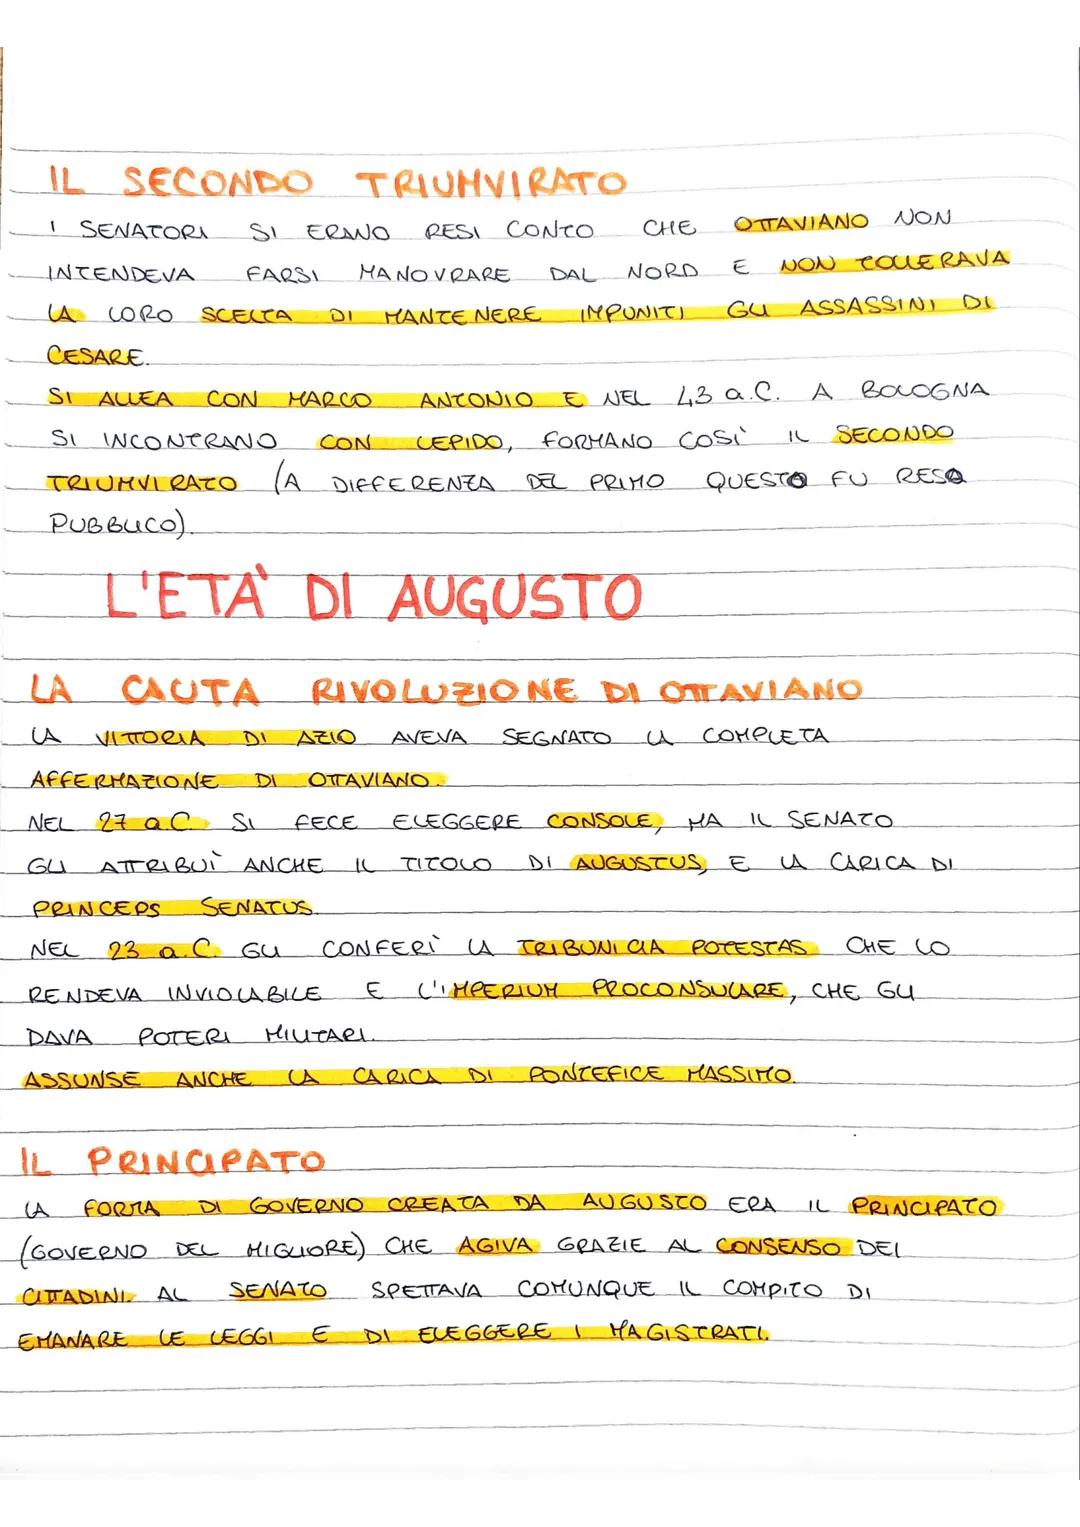 IL SECONDO TRIUMVIRATO
I SENATORI SI ERANO RESI CONTO CHE OTTAVIANO NON
INTENDEVA FARSI MANOVRARE DAL NORD E NON TOLLERAVA
LA LORO SCELTA DI MANTENERE IMPUNITI GLI ASSASSINI DI
CESARE.
SI ALLEA CON MARCO ANTONIO E NEL 43 a.C. A BOLOGNA
SI INCONTRANO CON LEPIDO, FORMANO COSÌ IL SECONDO
TRIUMVIRATO (A DIFFERENZA DEL PRIMO QUESTO FU RESO
PUBBLICO).
L'ETÀ DI AUGUSTO
LA CAUTA RIVOLUZIONE DI OTTAVIANO
LA VITTORIA DI AZIO AVEVA SEGNATO LA COMPLETA
AFFERMAZIONE DI OTTAVIANO.
NEL 27 a.C. SI FECE ELEGGERE CONSOLE, MA IL SENATO
GLI ATTRIBUÌ ANCHE IL TITOLO DI AUGUSTUS, E LA CARICA DI
PRINCEPS SENATUS.
NEL 23 a.C. GLI CONFERÌ LA TRIBUNICIA POTESTAS CHE LO
RENDEVA INVIOLABILE E L'IMPERIUM PROCONSULARE, CHE GLI
DAVA POTERI MILITARI.
ASSUNSE ANCHE LA CARICA DI PONTEFICE MASSIMO.
IL PRINCIPATO
LA FORMA DI GOVERNO CREATA DA AUGUSTO ERA IL PRINCIPATO
(GOVERNO DEL MIGLIORE) CHE AGIVA GRAZIE AL CONSENSO DEI
CITTADINI. AL SENATO SPETTAVA COMUNQUE IL COMPITO DI
EMANARE LE LEGGI E DI ELEGGERE I MAGISTRATI.